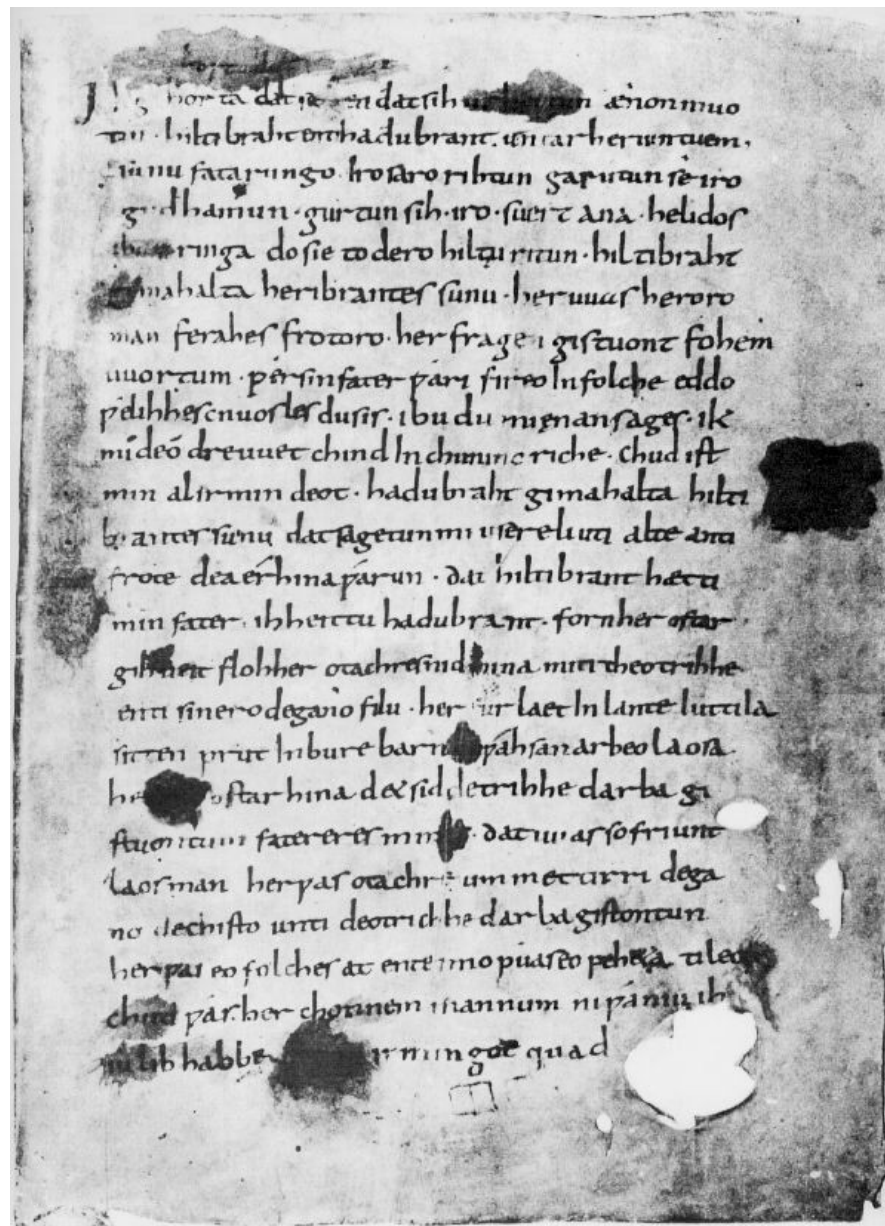 gihorta dat seggen dat sih urhettun ænon muo
tin · hiltibraht enti hadubrant · untar heriun tuem ·
sunufatarungo · iro saro rihtun garutun sê iro
gudhamun · gurtun sih · iro · suert ana · helidos
ubar ringa do sie to dero hiltu ritun · hiltibraht
gimahalta heribrantes sunu · her uuas heroro
man ferahes frotoro · her fragen gistuont fohem
uuortum · ƿer sin fater ƿari fireo In folche eddo
ƿelihhes cnuosles du sis · ibu du mi ęnan sages · ik
mi deo dre uuet chind In chuninc riche · chud ist
min al irmin deot · hadubraht gimahalta hilti
brantes sunu dat sagetun mi usere liuti alte anti
frote dea érhina ƿarun · dat hiltibrant hætti
min fater · ih heittu hadubrant · forn her ostar
gihueit floh her otachres nid hina miti theotrihhe
enti sinero degano filu · her furlaet In lante luttila
sitten prut In bure barn ƿahsan arbeo laosa
ostar hina d& sid detrihhe darba gi
stuontum fatereres mines · dat uuas so friunt
laos man her ƿas otachre ummet tirri dega
no dechisto unti deotrichhe darba gistontun
her ƿas eo folches at ente imo ƿuas eo feh&a ti leop
chud ƿas her chonnem mannum ni ƿaniu ih
iu lib habbe irmingot quad